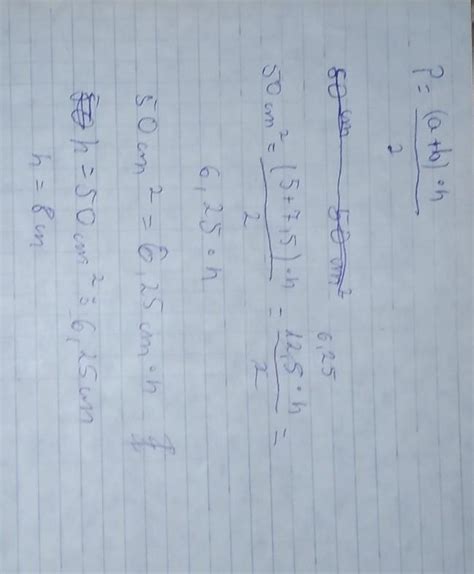 P = (a+b)·h / 2
50 cm 50 cm²
50 cm² = (5+7,5)·h / 2 = 12,5·h / 2 =
6,25
6,25·h
50 cm² = 6,25 cm·h
h = 50 cm² : 6,25 cm
h = 8 cm